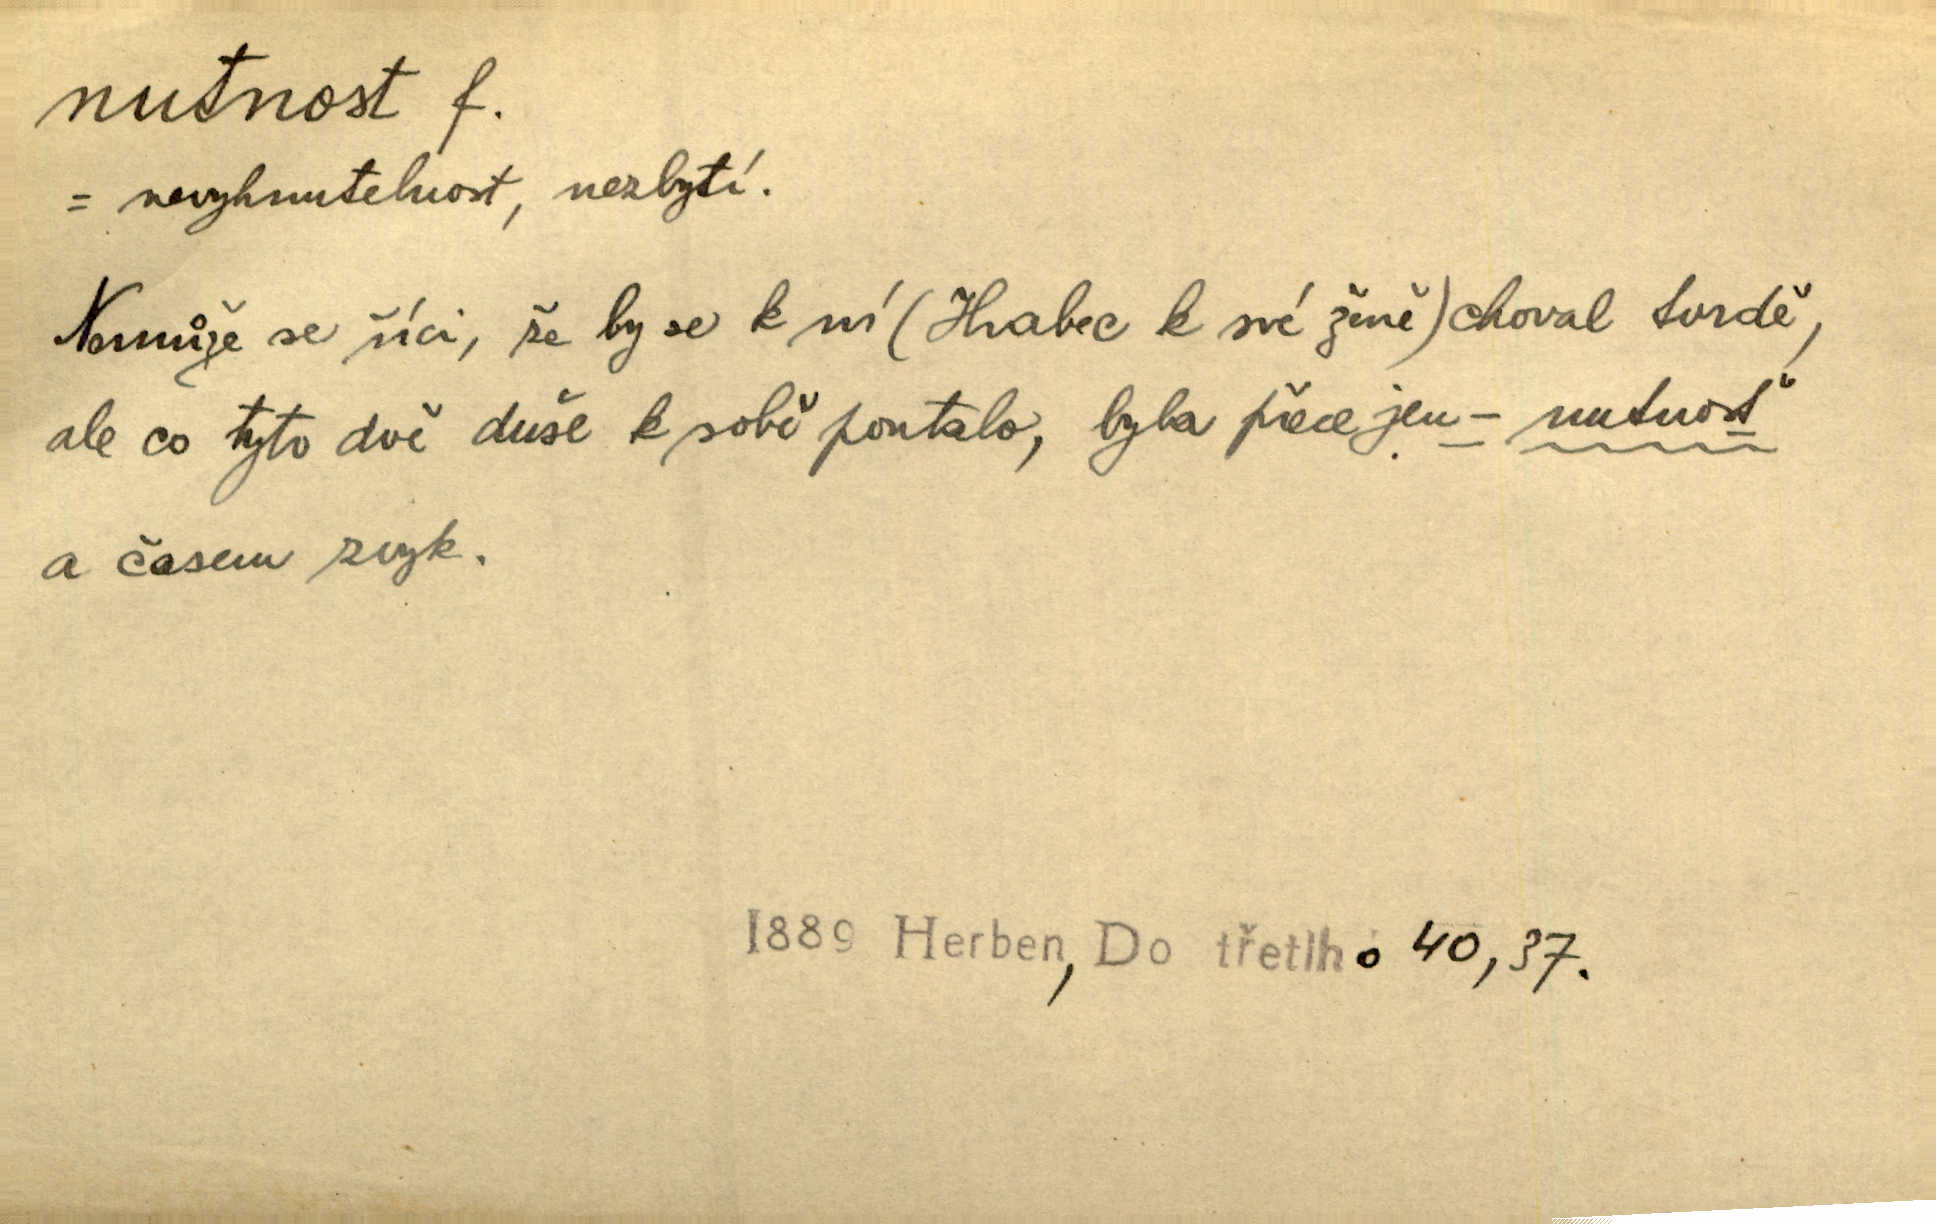 nutnost f.
= nevyhnutelnost, nezbytí.
Nemůže se říci, že by se k ní (Hrabec k své ženě) choval tvrdě,
ale co tyto dvě duše k sobě poutalo, byla přece jen – nutnosť
a časem zvyk.
1889 Herben, Do třetího 40, 37.